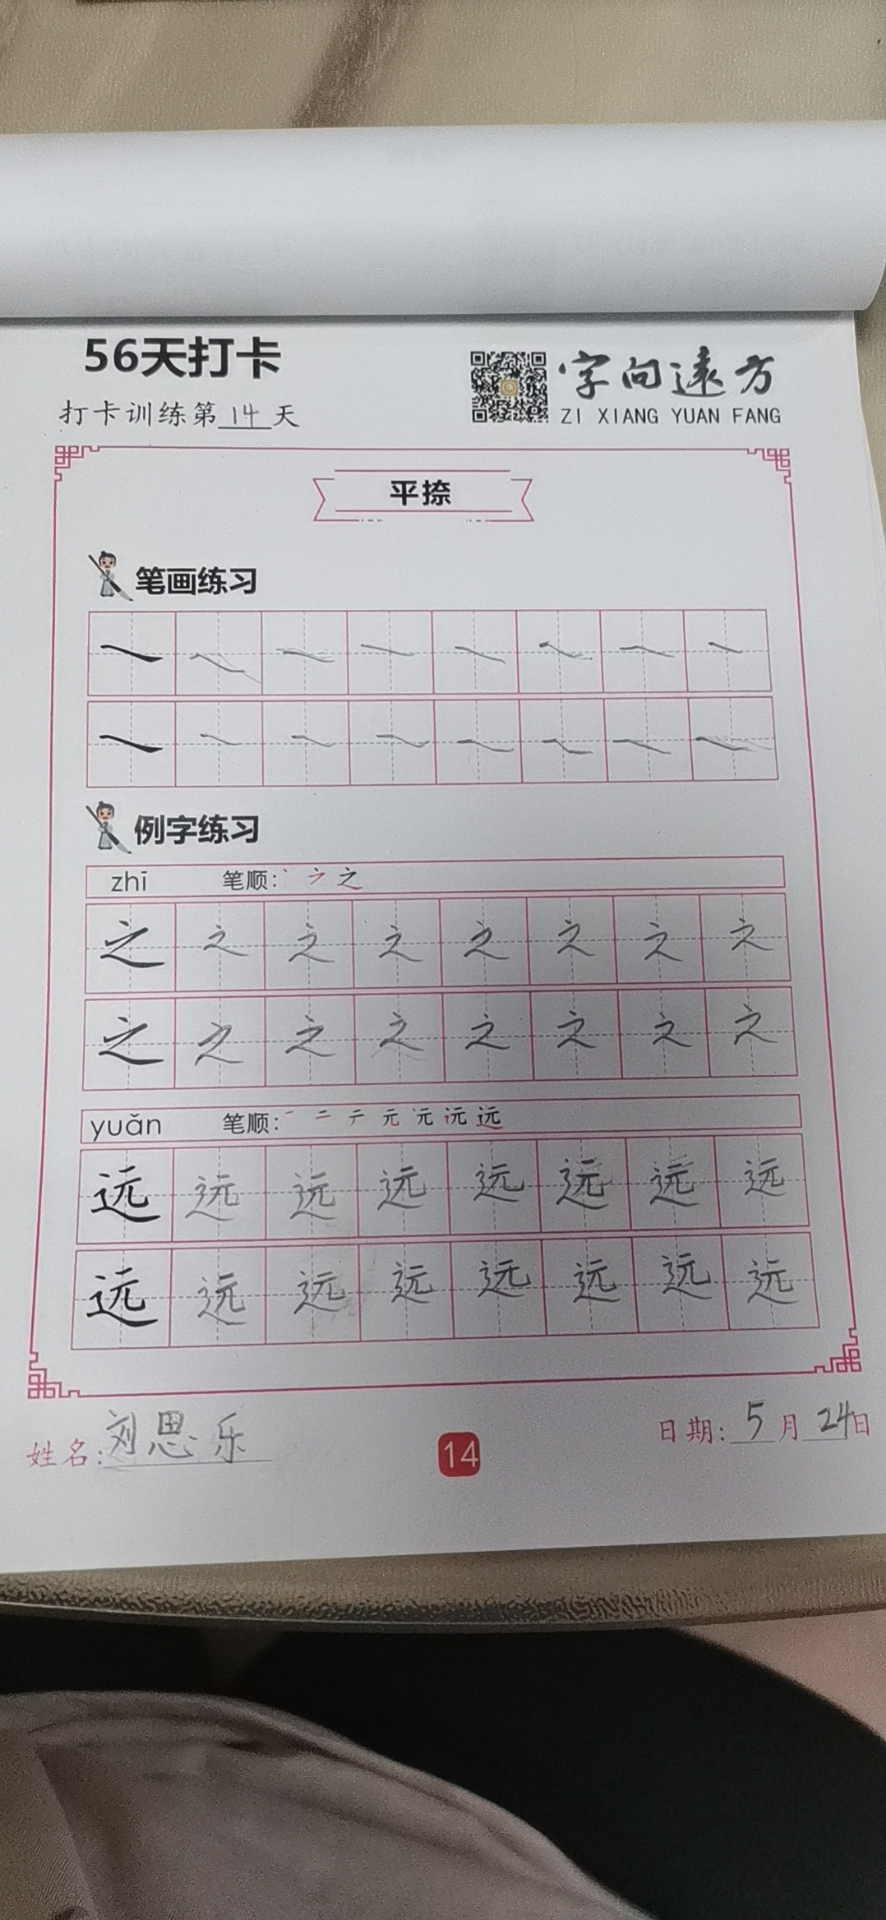 56天打卡
打卡训练第14天
字向遠方
ZI XIANG YUAN FANG
平捺
笔画练习
例字练习
zhī 笔顺: 之
之 之 之 之 之 之 之 之
之 之 之 之 之 之 之 之
yuǎn 笔顺: 一 二 テ 元 沅 远
远 远 远 远 远 远 远 远
远 远 远 远 远 远 远 远
姓名: 刘思乐
14
日期: 5月24日